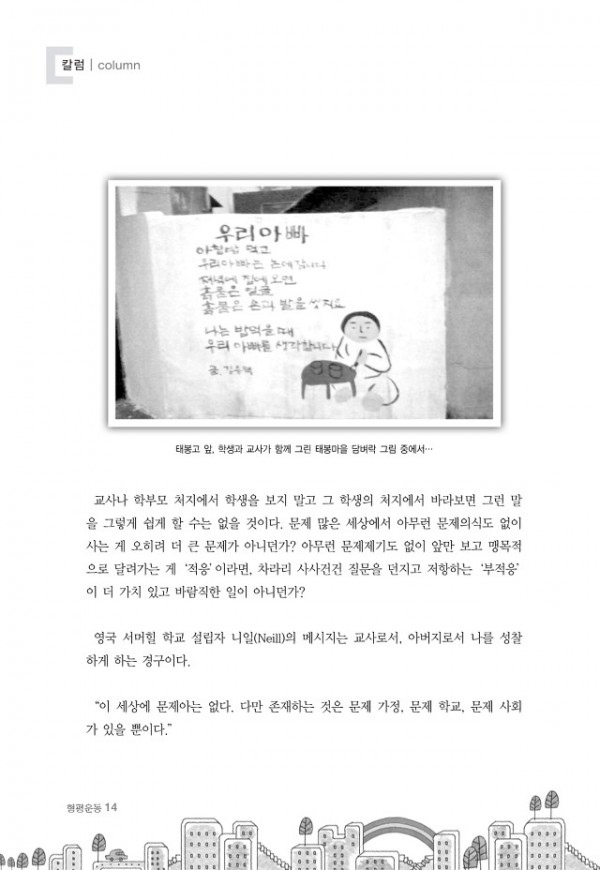 칼럼 | column
우리아빠
아침밥 먹고
우리아빠는 논에 갑니다
저녁에 집에오면
흙묻은 얼굴
흙묻은 손과 발을 씻지요
나는 밥먹을때
우리 아빠를 생각합니다
글. 김우택
태봉고 앞, 학생과 교사가 함께 그린 태봉마을 담벼락 그림 중에서…
교사나 학부모 처지에서 학생을 보지 말고 그 학생의 처지에서 바라보면 그런 말
을 그렇게 쉽게 할 수는 없을 것이다. 문제 많은 세상에서 아무런 문제의식도 없이
사는 게 오히려 더 큰 문제가 아니던가? 아무런 문제제기도 없이 앞만 보고 맹목적
으로 달려가는 게 ‘적응’이라면, 차라리 사사건건 질문을 던지고 저항하는 ‘부적응’
이 더 가치 있고 바람직한 일이 아니던가?
영국 서머힐 학교 설립자 니일(Neill)의 메시지는 교사로서, 아버지로서 나를 성찰
하게 하는 경구이다.
“이 세상에 문제아는 없다. 다만 존재하는 것은 문제 가정, 문제 학교, 문제 사회
가 있을 뿐이다.”
형평운동 14